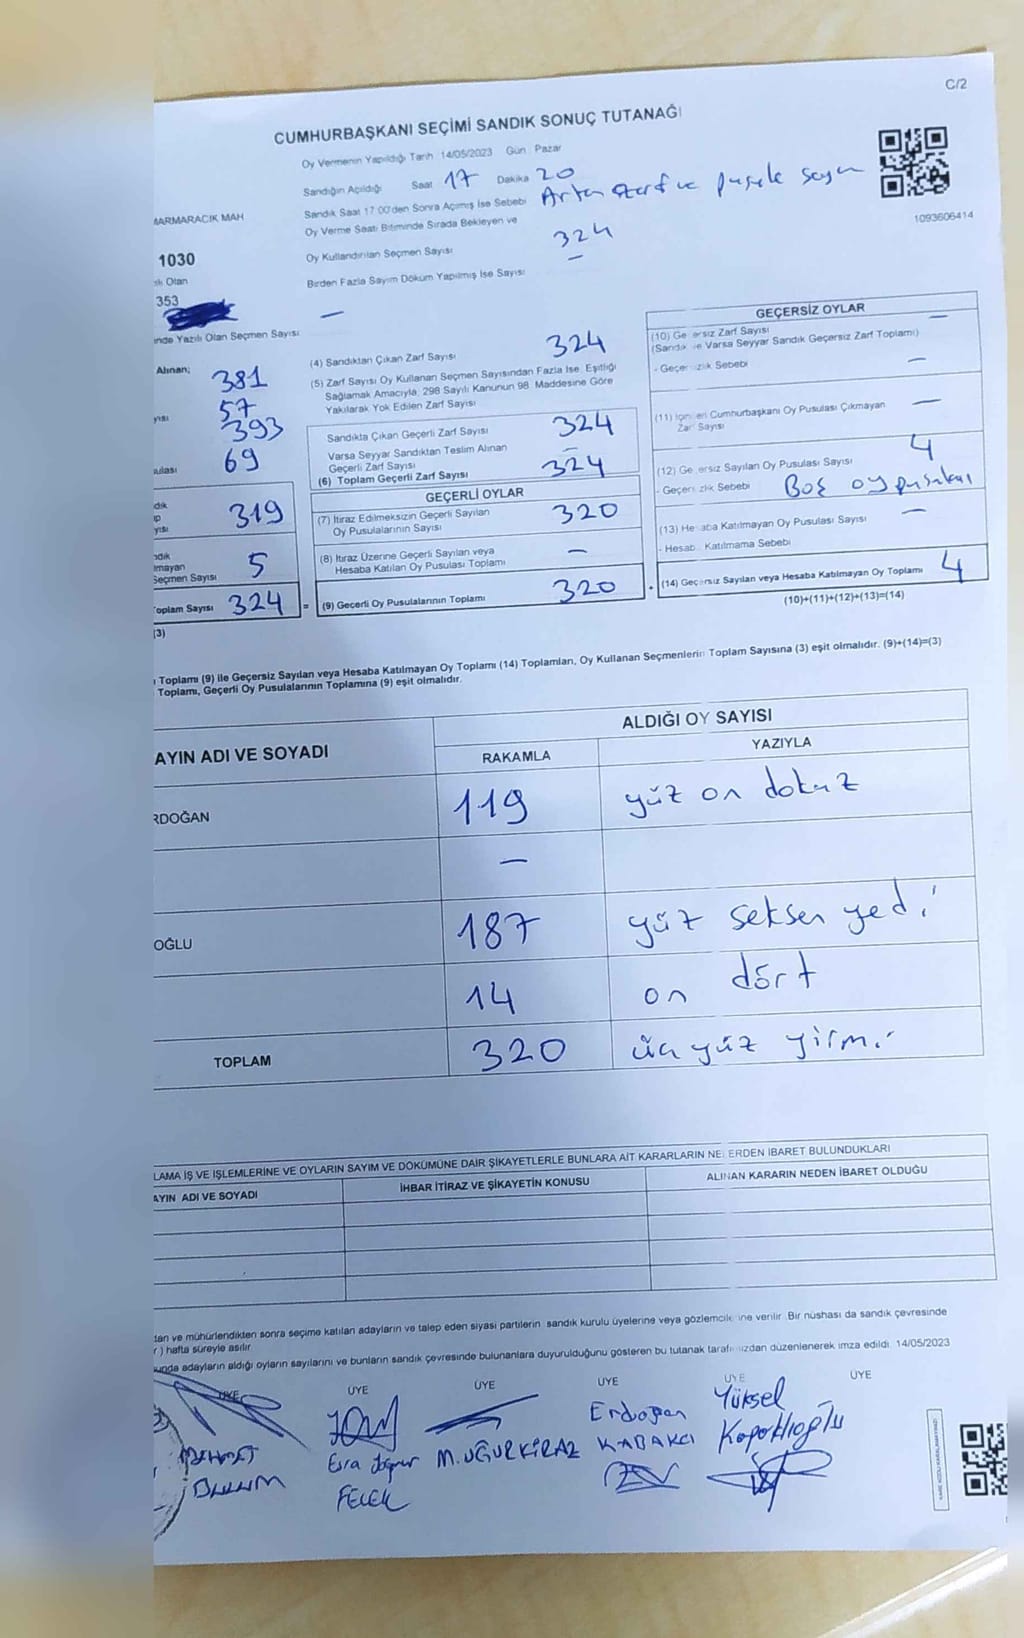 C/2
CUMHURBAŞKANI SEÇİMİ SANDIK SONUÇ TUTANAĞI
Oy Vermenin Yapıldığı Tarih 14/05/2023 Gün Pazar
Sandığın Açıldığı Saat 17 Dakika 20
Sandık Saat 17:00'den Sonra Açılmış İse Sebebi Artan zarf ve pusula sayımı
Oy Verme Saati Bitiminde Sırada Bekleyen ve
Oy Kullandırılan Seçmen Sayısı 324
Birden Fazla Sayım Döküm Yapılmış İse Sayısı –
1093606414
MARMARACIK MAH
1030
Olan
353
inde Yazılı Olan Seçmen Sayısı –
Alınan; 381
yısı 57
393
ulası 69
dık
ıp
yısı 319
ndık
lmayan
Seçmen Sayısı 5
oplam Sayısı 324 =
(3)
(4) Sandıktan Çıkan Zarf Sayısı 324
(5) Zarf Sayısı Oy Kullanan Seçmen Sayısından Fazla İse, Eşitliği
Sağlamak Amacıyla, 298 Sayılı Kanunun 98. Maddesine Göre
Yakılarak Yok Edilen Zarf Sayısı
Sandıkta Çıkan Geçerli Zarf Sayısı 324
Varsa Seyyar Sandıktan Teslim Alınan
Geçerli Zarf Sayısı –
(6) Toplam Geçerli Zarf Sayısı 324
GEÇERLİ OYLAR
(7) İtiraz Edilmeksizin Geçerli Sayılan
Oy Pusulalarının Sayısı 320
(8) İtiraz Üzerine Geçerli Sayılan veya
Hesaba Katılan Oy Pusulası Toplamı –
(9) Geçerli Oy Pusulalarının Toplamı 320 +
GEÇERSİZ OYLAR
(10) Geçersiz Zarf Sayısı –
(Sandık ve Varsa Seyyar Sandık Geçersiz Zarf Toplamı)
- Geçersizlik Sebebi –
(11) İçinden Cumhurbaşkanı Oy Pusulası Çıkmayan
Zarf Sayısı –
(12) Geçersiz Sayılan Oy Pusulası Sayısı 4
- Geçersizlik Sebebi Boş oy pusulası
(13) Hesaba Katılmayan Oy Pusulası Sayısı –
- Hesaba Katılmama Sebebi
(14) Geçersiz Sayılan veya Hesaba Katılmayan Oy Toplamı 4
(10)+(11)+(12)+(13)=(14)
Toplamı (9) ile Geçersiz Sayılan veya Hesaba Katılmayan Oy Toplamı (14) Toplamları, Oy Kullanan Seçmenlerin Toplam Sayısına (3) eşit olmalıdır. (9)+(14)=(3)
Toplamı, Geçerli Oy Pusulalarının Toplamına (9) eşit olmalıdır.
AYIN ADI VE SOYADI
ALDIĞI OY SAYISI
RAKAMLA YAZIYLA
RDOĞAN 119 yüz on dokuz
–
OĞLU 187 yüz seksen yedi
14 on dört
TOPLAM 320 üç yüz yirmi
LAMA İŞ VE İŞLEMLERİNE VE OYLARIN SAYIM VE DÖKÜMÜNE DAİR ŞİKAYETLERLE BUNLARA AİT KARARLARIN NELERDEN İBARET BULUNDUKLARI
AYIN ADI VE SOYADI İHBAR İTİRAZ VE ŞİKAYETİN KONUSU ALINAN KARARIN NEDEN İBARET OLDUĞU
tan ve mühürlendikten sonra seçime katılan adayların ve talep eden siyasi partilerin sandık kurulu üyelerine veya gözlemcilerine verilir. Bir nüshası da sandık çevresinde
r) hafta süreyle asılır.
unda adayların aldığı oyların sayılarını ve bunların sandık çevresinde bulunanlara duyurulduğunu gösteren bu tutanak tarafımızdan düzenlenerek imza edildi. 14/05/2023
ÜYE ÜYE ÜYE ÜYE ÜYE ÜYE
MEHMET
Esra
FELEK
M. UĞUR KİRAZ
Erdoğan
KABAKCI
Yüksel